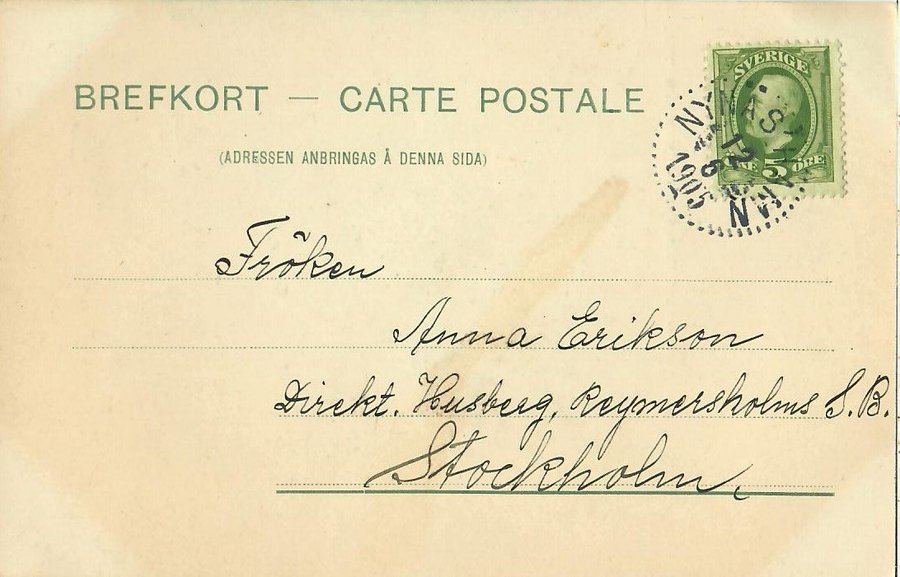 BREFKORT — CARTE POSTALE
(ADRESSEN ANBRINGAS Å DENNA SIDA)
SVERIGE
5 ÖRE
NYNÄSHAMN
12
8
1905
Fröken
Anna Erikson
Direkt. Husberg, Reymersholms S. B.
Stockholm.